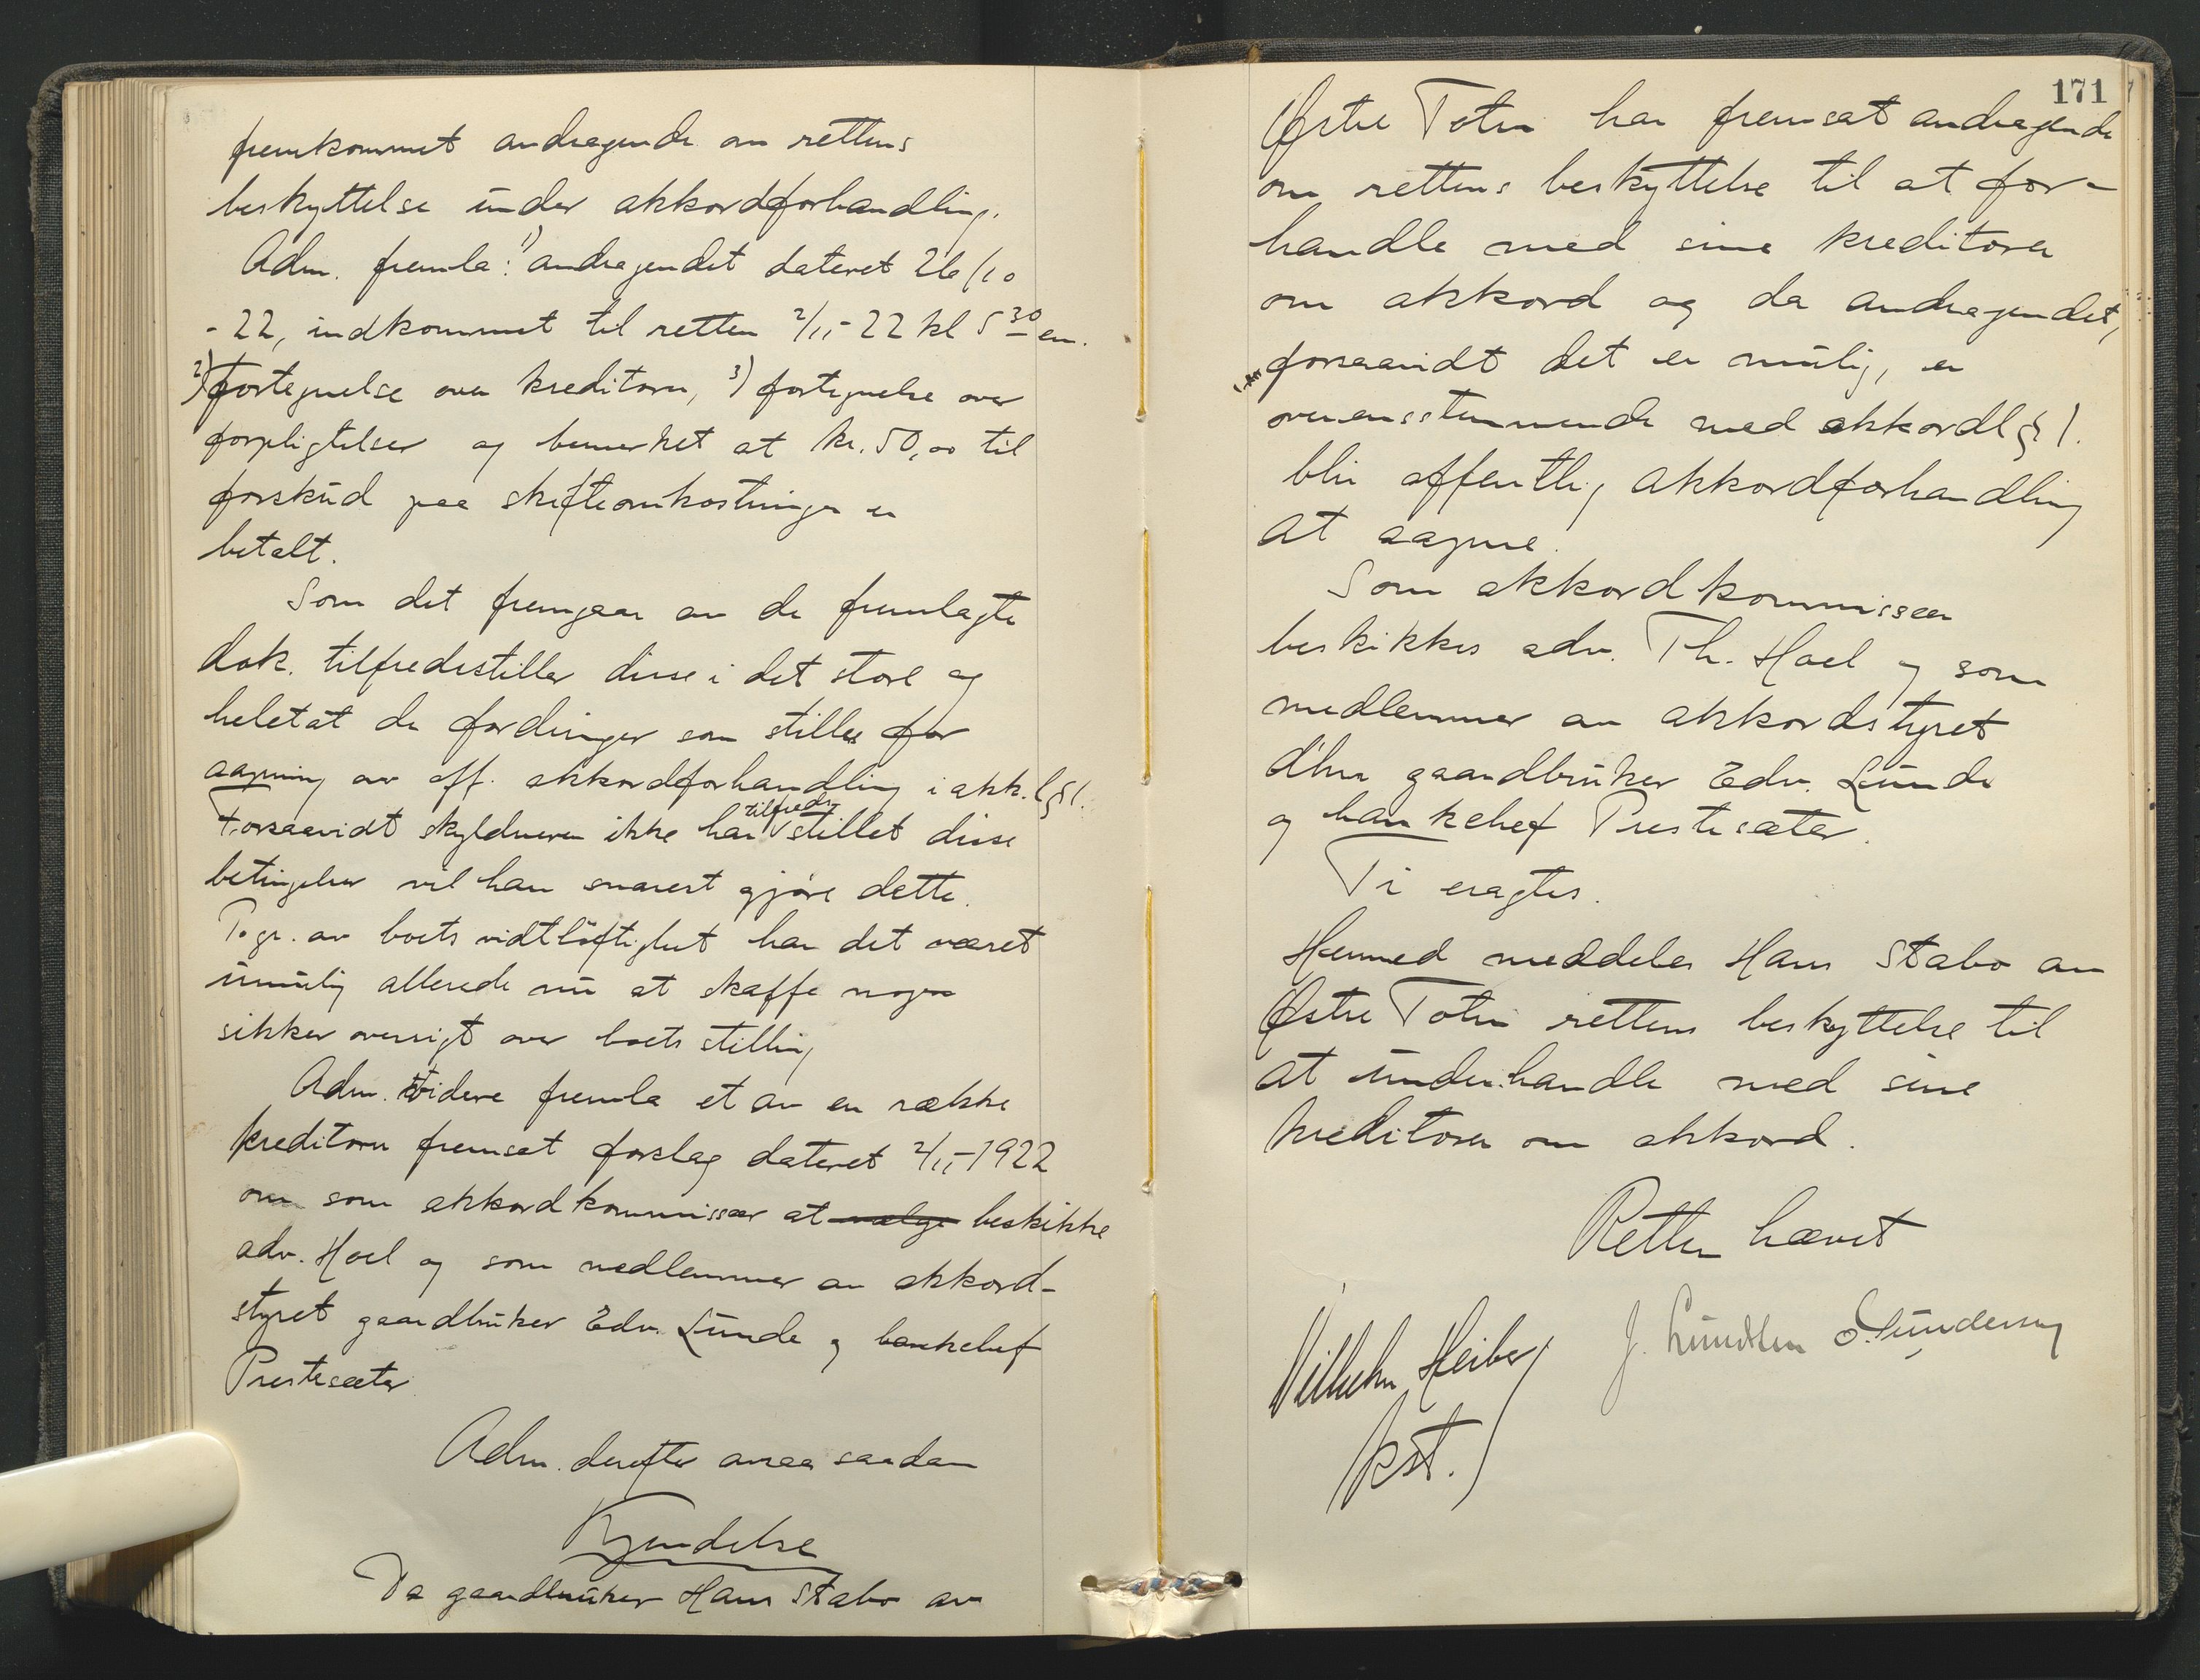 fremkommet andragende om rettens
beskyttelse under akkordforhandling.
Adm. fremla: 1) andragendet dateret 26/10
-22, indkommet til retten 2/11-22 kl 5 30 em.
2) fortegnelse over kreditorer, 3) fortegnelse over
forpligtelser og bemerket at kr. 50,00 til
forskud paa skifteomkostninger er
betalt.
Som det fremgaar av de fremlagte
dok. tilfredsstiller disse i det store og
heletat de fordringer som stilles for
aapning av off. akkordforhandling i akk.l § 1.
Forsaavidt skyldneren ikke har tilfreds stillet disse
betingelser vil han snarest gjøre dette.
P. gr. av boets vidtløftighet har det været
umulig allerede nu at skaffe nogen
sikker oversigt over boets stilling
Adm. videre fremla et av en række
kreditorer fremsat forslag dateret 2/11-1922
om som akkordkommissær at vælge beskikke
adv. Hoel og som medlemmer av akkord-
styret gaardbruker Edv. Lunde og bankchef
Prestesæter
Adm. derefter avsaa saadan
Kjendelse
Da gaardbruker Hans Stabo av
171
Østre Toten har fremsat andragende
om rettens beskyttelse til at for-
handle med sine kreditorer
om akkord og da andragendet,
forsaavidt det er mulig, er
overensstemmende med akkordl § 1.
blir offentlig akkordforhandling
at aapne.
Som akkordkommissær
beskikkes adv. Th. Hoel og som
medlemmer av akkordstyret
d'hrr gaardbruker Edv. Lunde
og bankchef Prestesæter.
Ti eragtes.
Hermed meddeles Hans Stabo av
Østre Toten rettens beskyttelse til
at underhandle med sine
kreditorer om akkord.
Retten hævet
Vilhelm Heiberg J. Lundsen
kst.